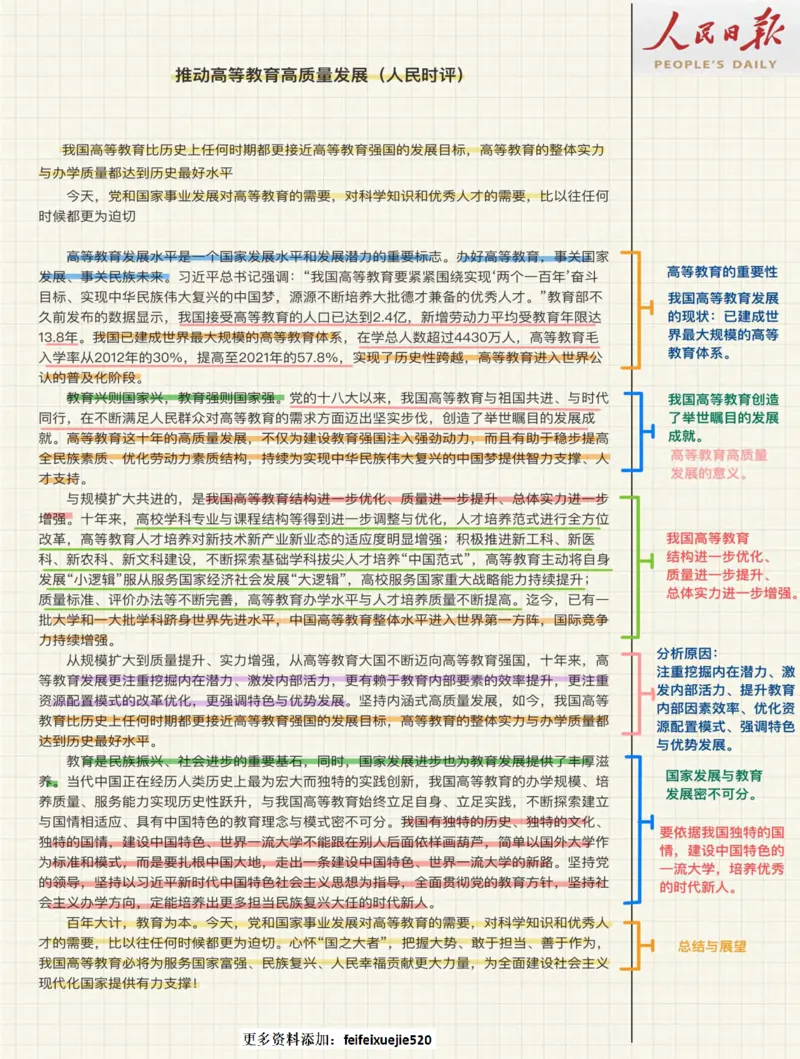 人民日报
PEOPLE'S DAILY
推动高等教育高质量发展（人民时评）
我国高等教育比历史上任何时期都更接近高等教育强国的发展目标，高等教育的整体实力
与办学质量都达到历史最好水平
今天，党和国家事业发展对高等教育的需要，对科学知识和优秀人才的需要，比以往任何
时候都更为迫切
高等教育发展水平是一个国家发展水平和发展潜力的重要标志。办好高等教育，事关国家
发展、事关民族未来。习近平总书记强调：“我国高等教育要紧紧围绕实现‘两个一百年’奋斗
目标、实现中华民族伟大复兴的中国梦，源源不断培养大批德才兼备的优秀人才。”教育部不
久前发布的数据显示，我国接受高等教育的人口已达到2.4亿，新增劳动力平均受教育年限达
13.8年。我国已建成世界最大规模的高等教育体系，在学总人数超过4430万人，高等教育毛
入学率从2012年的30%，提高至2021年的57.8%，实现了历史性跨越，高等教育进入世界公
认的普及化阶段。
教育兴则国家兴，教育强则国家强。党的十八大以来，我国高等教育与祖国共进、与时代
同行，在不断满足人民群众对高等教育的需求方面迈出坚实步伐，创造了举世瞩目的发展成
就。高等教育这十年的高质量发展，不仅为建设教育强国注入强劲动力，而且有助于稳步提高
全民族素质、优化劳动力素质结构，持续为实现中华民族伟大复兴的中国梦提供智力支撑、人
才支持。
与规模扩大共进的，是我国高等教育结构进一步优化、质量进一步提升、总体实力进一步
增强。十年来，高校学科专业与课程结构等得到进一步调整与优化，人才培养范式进行全方位
改革，高等教育人才培养对新技术新产业新业态的适应度明显增强；积极推进新工科、新医
科、新农科、新文科建设，不断探索基础学科拔尖人才培养“中国范式”，高等教育主动将自身
发展“小逻辑”服从服务国家经济社会发展“大逻辑”，高校服务国家重大战略能力持续提升；
质量标准、评价办法等不断完善，高等教育办学水平与人才培养质量不断提高。迄今，已有一
批大学和一大批学科跻身世界先进水平，中国高等教育整体水平进入世界第一方阵，国际竞争
力持续增强。
从规模扩大到质量提升、实力增强，从高等教育大国不断迈向高等教育强国，十年来，高
等教育发展更注重挖掘内在潜力、激发内部活力，更有赖于教育内部要素的效率提升，更注重
资源配置模式的改革优化，更强调特色与优势发展。坚持内涵式高质量发展，如今，我国高等
教育比历史上任何时期都更接近高等教育强国的发展目标，高等教育的整体实力与办学质量都
达到历史最好水平。
教育是民族振兴、社会进步的重要基石，同时，国家发展进步也为教育发展提供了丰厚滋
养。当代中国正在经历人类历史上最为宏大而独特的实践创新，我国高等教育的办学规模、培
养质量、服务能力实现历史性跃升，与我国高等教育始终立足自身、立足实践，不断探索建立
与国情相适应、具有中国特色的教育理念与模式密不可分。我国有独特的历史、独特的文化、
独特的国情，建设中国特色、世界一流大学不能跟在别人后面依样画葫芦，简单以国外大学作
为标准和模式，而是要扎根中国大地，走出一条建设中国特色、世界一流大学的新路。坚持党
的领导，坚持以习近平新时代中国特色社会主义思想为指导，全面贯彻党的教育方针，坚持社
会主义办学方向，定能培养出更多担当民族复兴大任的时代新人。
百年大计，教育为本。今天，党和国家事业发展对高等教育的需要，对科学知识和优秀人
才的需要，比以往任何时候都更为迫切。心怀“国之大者”，把握大势、敢于担当、善于作为，
我国高等教育必将为服务国家富强、民族复兴、人民幸福贡献更大力量，为全面建设社会主义
现代化国家提供有力支撑！
高等教育的重要性
我国高等教育发展
的现状：已建成世
界最大规模的高等
教育体系。
我国高等教育创造
了举世瞩目的发展
成就。
高等教育高质量
发展的意义。
我国高等教育
结构进一步优化、
质量进一步提升、
总体实力进一步增强。
分析原因：
注重挖掘内在潜力、激
发内部活力、提升教育
内部因素效率、优化资
源配置模式、强调特色
与优势发展。
国家发展与教育
发展密不可分。
要依据我国独特的国
情，建设中国特色的
一流大学，培养优秀
的时代新人。
总结与展望
更多资料添加：feifeixuejie520